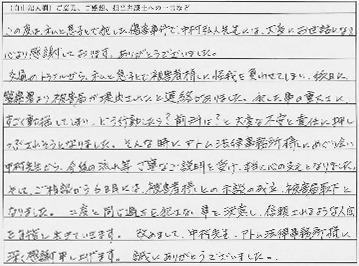 (自由記入欄)ご意見、ご感想、担当弁護士への一言など
この度は、私と息子で犯した傷害事件で、中村弘人先生には、大変お世話になり
心より感謝しております。ありがとうございました。
交通のトラブルから、私と息子で被害者様に怪我を負わせてしまい、後日に
警察署より被害届が提出されたと連絡がありました。犯した事の重大さに
すごく動揺してしまい、どう行動したら?前科は?と大きな不安と責任に押し
つぶされそうになりました。そんな時にアトム法律事務所様にめぐり会い
中村先生から、今後の流れ等丁寧なご説明を受け、本当に心の支えとなりました。
そして、ご相談から6日には、被害者様との示談の成立、被害届取下と
なりました。二度と同じ過ちを犯さない事を決意し、信頼されるような人間
を目指し生きていきます。改めまして、中村先生、アトム法律事務所様に
深く感謝申し上げます。誠にありがとうございました。